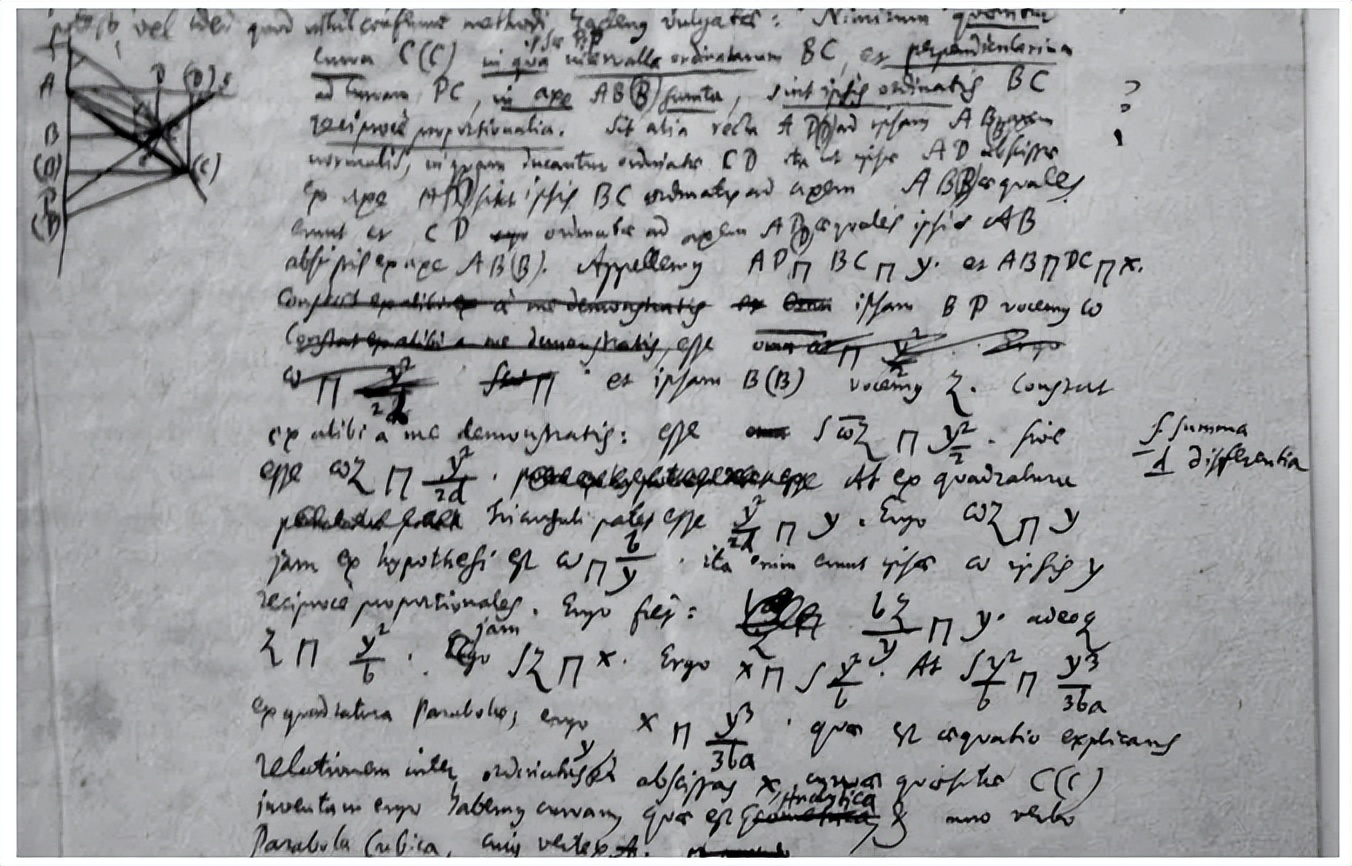 vel quod methodi vulgares: Nimirum quæritur
T
A D (D)
B
(B) (C)
P
(P)
curva C(C) in qua intervalla ordinatarum BC, et perpendicularium
ad curvam PC, in axe AB(B) sumta, sint ipsis ordinatis BC
reciproce proportionalia. Sit alia recta AD(D) ad ipsam AB(B) axem
normalis, in quam ducantur ordinatæ CD ita ut ipsæ AD abscissæ
ex axe AD(D) sint ipsis BC ordinatis ad axem AB(B) æquales
erunt et CD ordinatæ ad axem AD(D) æquales ipsis AB
abscissis ex axe AB(B). Appellemus AD ⊓ BC ⊓ y. et AB ⊓ DC ⊓ x.
Constat ex alibi a me demonstratis ipsam BP vocemus ω
Constat ex alibi a me demonstratis, esse ⊓ y²/2. Ergo
ω ⊓ y²/2d ⊓ et ipsam B(B) vocemus z. Constat
ex alibi a me demonstratis: esse ∫ωz ⊓ y²/2. sive
esse ωz ⊓ y²/2d. At ex quadratura
∫ summa
d differentia
trianguli patet esse y²/2d ⊓ y. Ergo ωz ⊓ y
jam ex hypothesi est ω ⊓ b/y. ita enim erunt ipsæ ω ipsis y
reciproce proportionales. Ergo fiet: bz/y ⊓ y. adeoq
z ⊓ y²/b. jam ∫z ⊓ x. Ergo x ⊓ ∫y²/b. At ∫y²/b ⊓ y³/3ba
ex quadratura Parabolæ, ergo x ⊓ y³/3ba. quæ est æquatio explicans
relationem inter ordinatas y et abscissas x, curvæ quæsitæ C(C)
inventam ergo habemus curvam quæ est Analytica & uno verbo
Parabola Cubica, cujus vertex A.